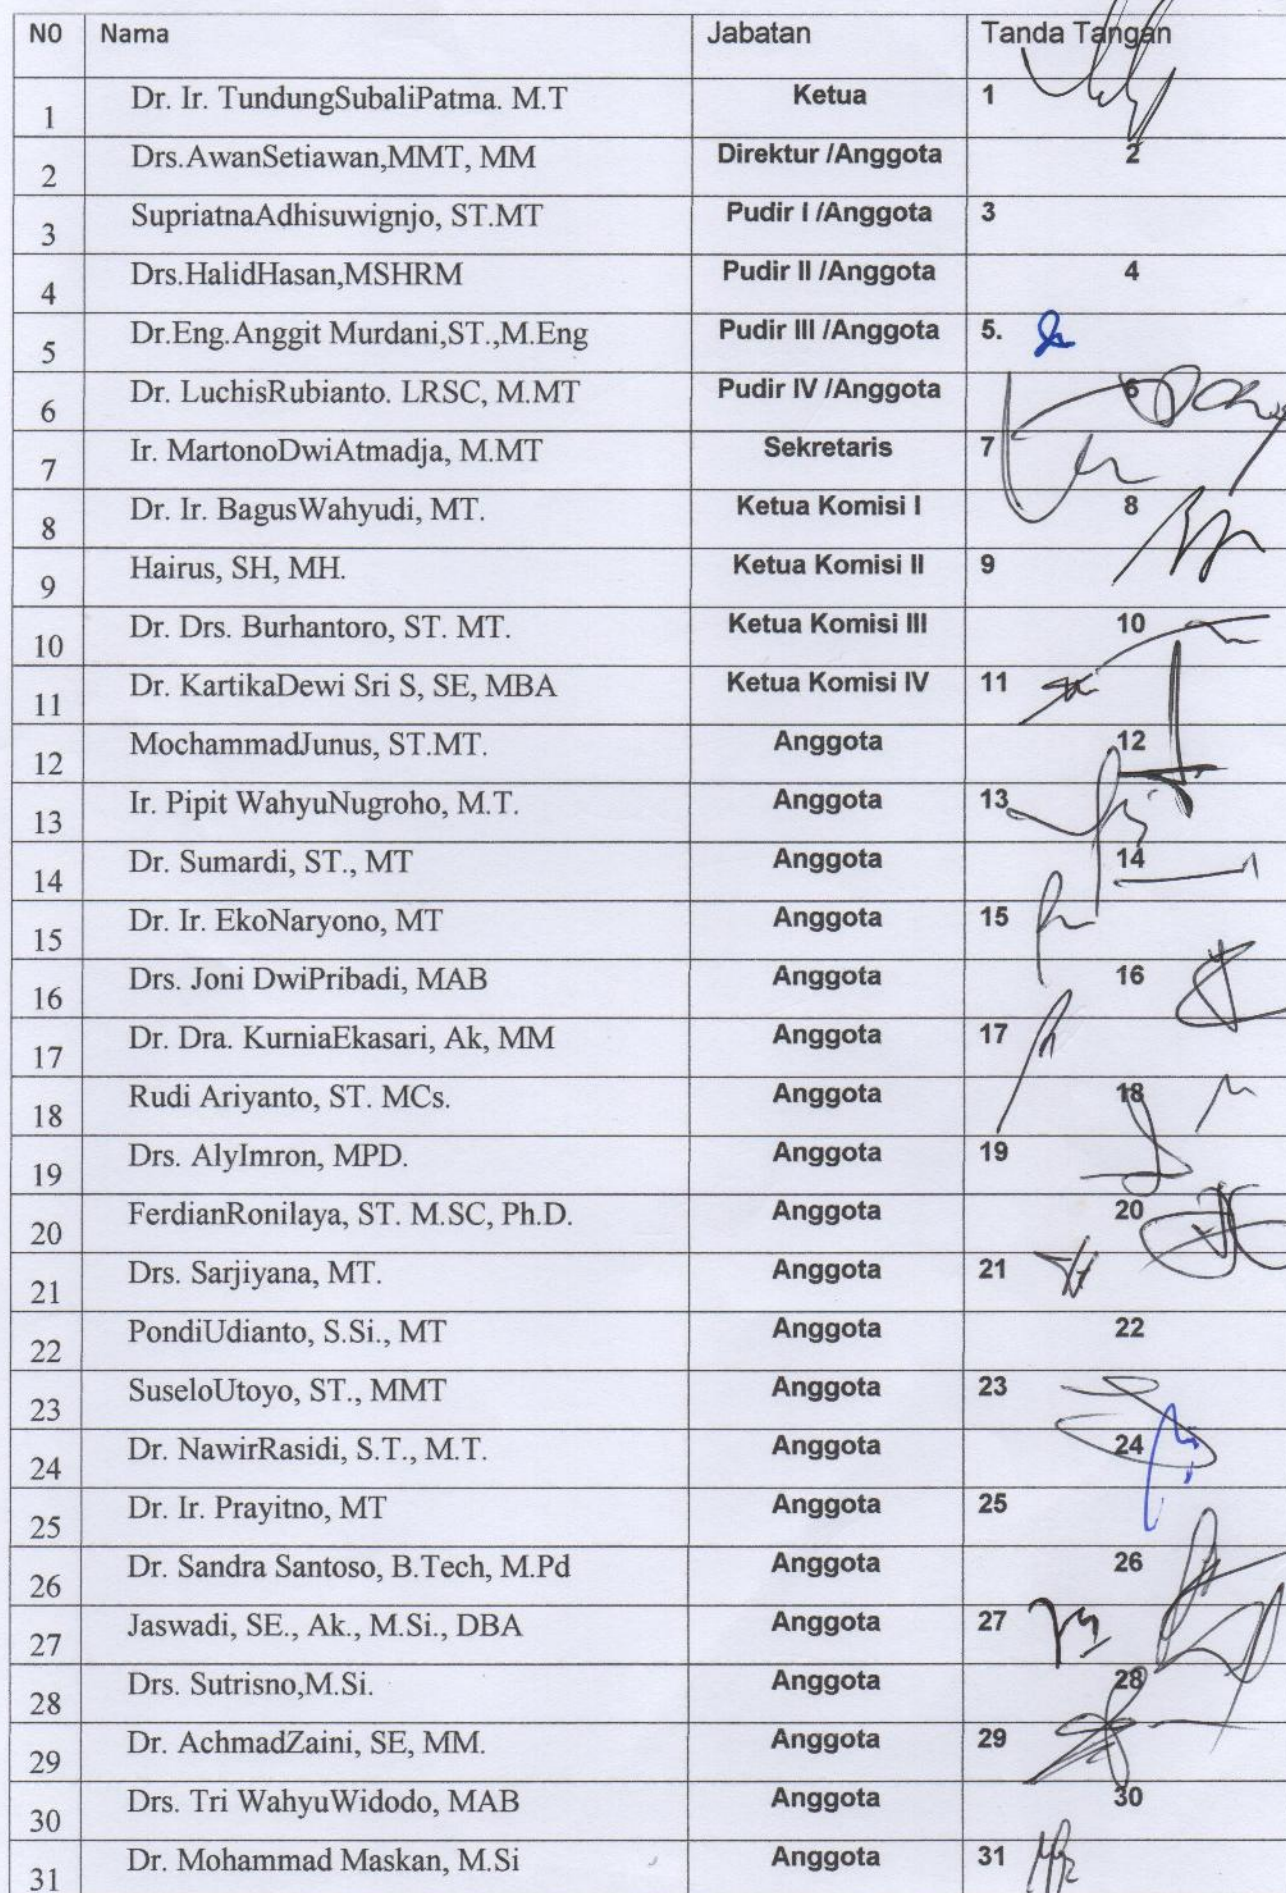 N0 Nama Jabatan Tanda Tangan
1 Dr. Ir. TundungSubaliPatma. M.T Ketua 1
2 Drs.AwanSetiawan,MMT, MM Direktur /Anggota 2
3 SupriatnaAdhisuwignjo, ST.MT Pudir I /Anggota 3
4 Drs.HalidHasan,MSHRM Pudir II /Anggota 4
5 Dr.Eng.Anggit Murdani,ST.,M.Eng Pudir III /Anggota 5.
6 Dr. LuchisRubianto. LRSC, M.MT Pudir IV /Anggota 6
7 Ir. MartonoDwiAtmadja, M.MT Sekretaris 7
8 Dr. Ir. BagusWahyudi, MT. Ketua Komisi I 8
9 Hairus, SH, MH. Ketua Komisi II 9
10 Dr. Drs. Burhantoro, ST. MT. Ketua Komisi III 10
11 Dr. KartikaDewi Sri S, SE, MBA Ketua Komisi IV 11
12 MochammadJunus, ST.MT. Anggota 12
13 Ir. Pipit WahyuNugroho, M.T. Anggota 13
14 Dr. Sumardi, ST., MT Anggota 14
15 Dr. Ir. EkoNaryono, MT Anggota 15
16 Drs. Joni DwiPribadi, MAB Anggota 16
17 Dr. Dra. KurniaEkasari, Ak, MM Anggota 17
18 Rudi Ariyanto, ST. MCs. Anggota 18
19 Drs. AlyImron, MPD. Anggota 19
20 FerdianRonilaya, ST. M.SC, Ph.D. Anggota 20
21 Drs. Sarjiyana, MT. Anggota 21
22 PondiUdianto, S.Si., MT Anggota 22
23 SuseloUtoyo, ST., MMT Anggota 23
24 Dr. NawirRasidi, S.T., M.T. Anggota 24
25 Dr. Ir. Prayitno, MT Anggota 25
26 Dr. Sandra Santoso, B.Tech, M.Pd Anggota 26
27 Jaswadi, SE., Ak., M.Si., DBA Anggota 27
28 Drs. Sutrisno,M.Si. Anggota 28
29 Dr. AchmadZaini, SE, MM. Anggota 29
30 Drs. Tri WahyuWidodo, MAB Anggota 30
31 Dr. Mohammad Maskan, M.Si Anggota 31